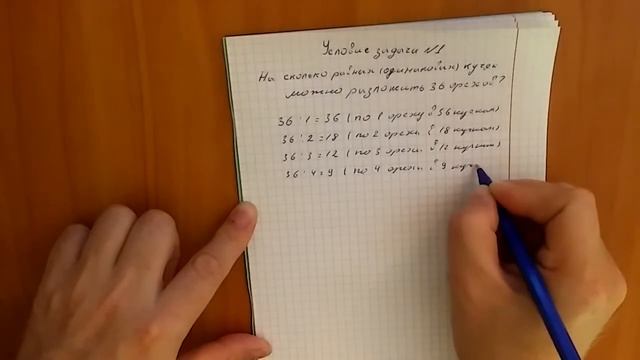 Условие задачи №1
На сколько равных (одинаковых) кучек
можно разложить 36 орехов?
36 : 1 = 36 ( по 1 ореху в 36 кучках)
36 : 2 = 18 ( по 2 ореха в 18 кучках)
36 : 3 = 12 ( по 3 ореха в 12 кучках)
36 : 4 = 9 ( по 4 ореха в 9 куч